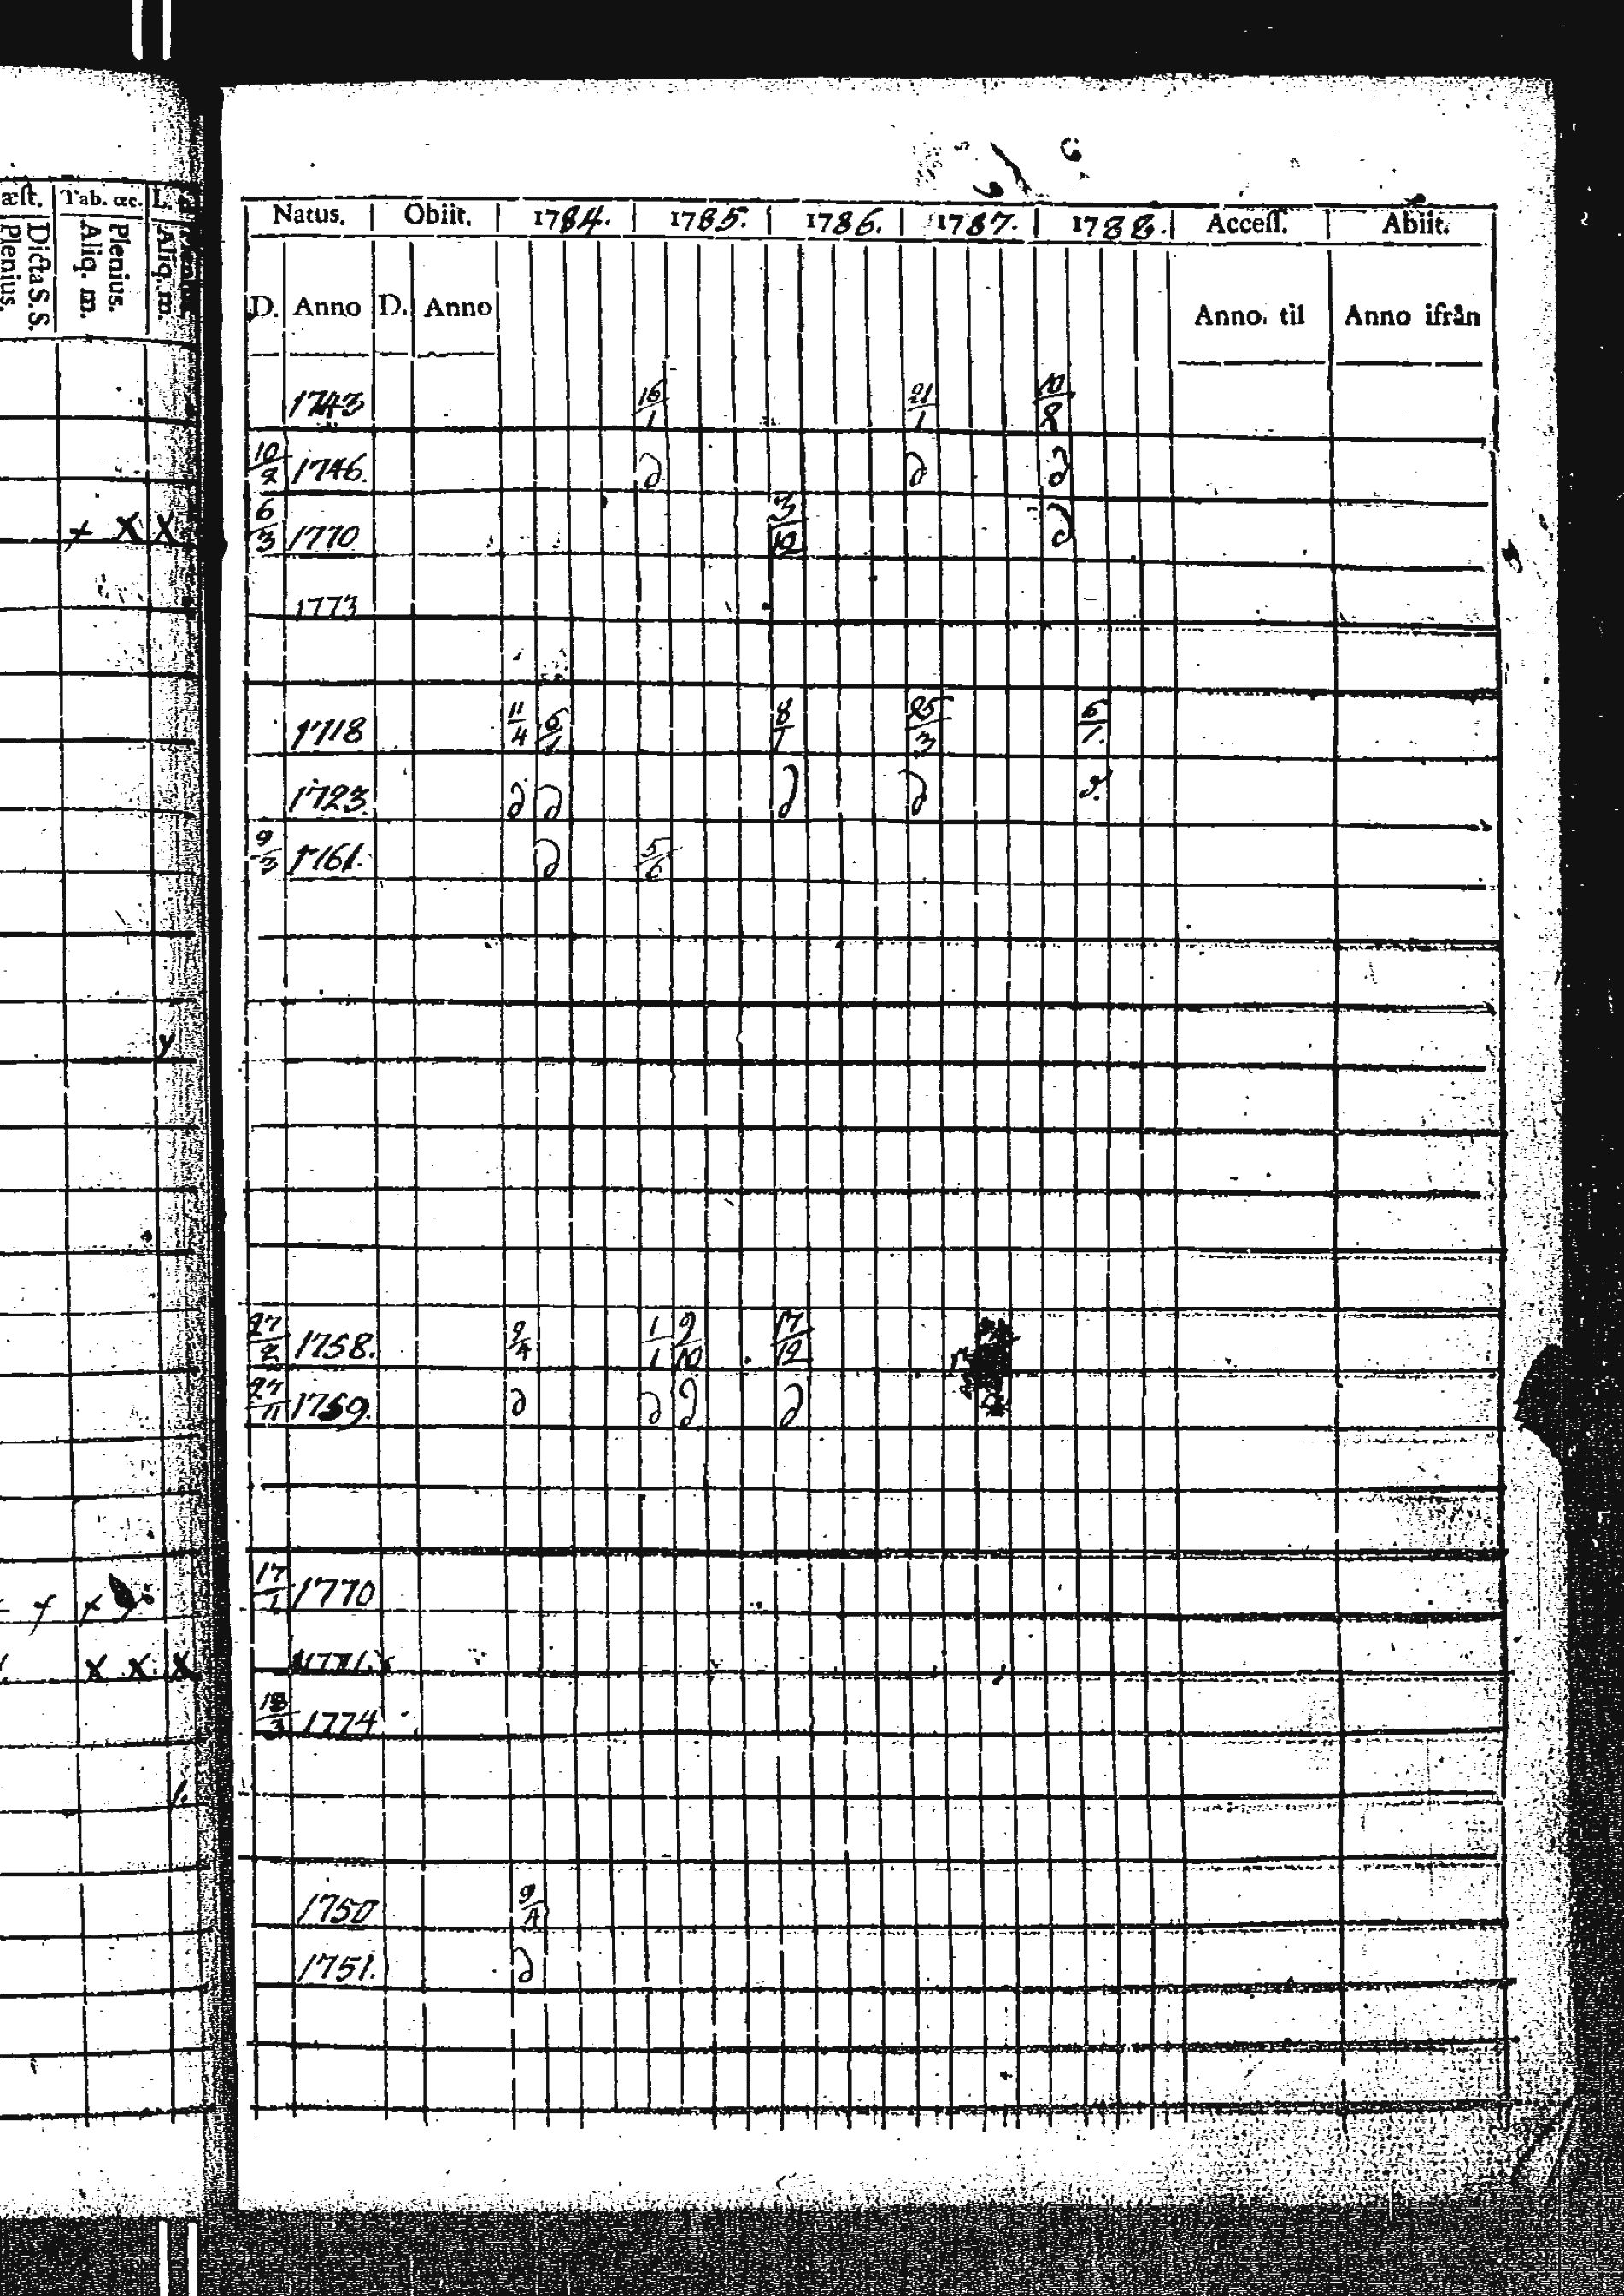 æſt. Tab. œc. L.
Dicta S. S. Plenius. Plenius. Aliq. m. Aliq. m.
Natus. Obiit. 1784. 1785. 1786. 1787. 1788. Acceſſ. Abiit.
D. Anno D. Anno Anno til Anno ifrån
1743 16/1 21/1
1746 ∂ ∂ ∂
+ X X 6/3 1770 3/12 ∂
1773
1718 11/4 6/1 8/1 25/3 6/1.
1723. ∂ ∂ ∂ ∂ ∂.
9/3 1761. ∂ 5/6
y
27/2 1758. 9/4 1/1 9/10 17/12
27/11 1759. ∂ ∂ ∂ ∂
+ + 17/1 1770
X X X
18/3 1774
1750 9/4
1751. ∂